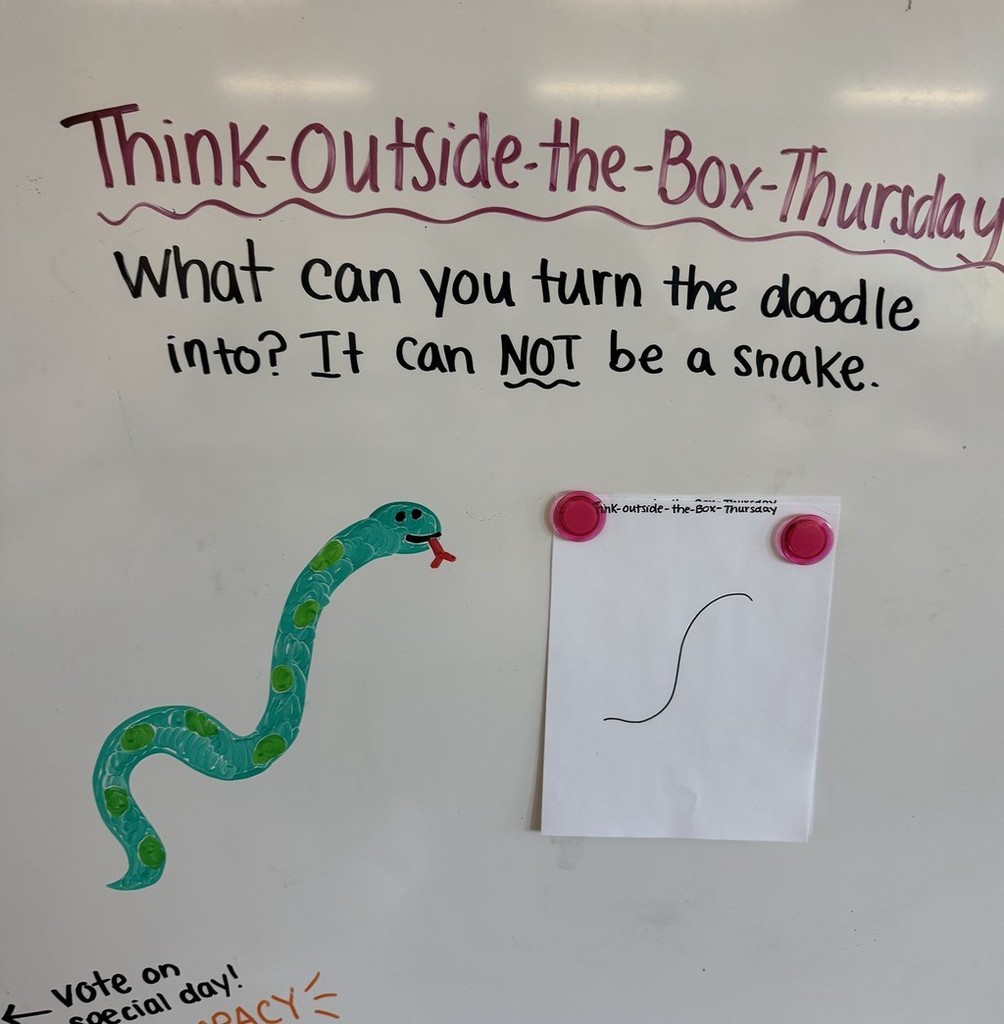 Think-Outside-the-Box-Thursday
What can you turn the doodle
into? It can NOT be a snake.
Think-Outside-the-Box-Thursday
← vote on
special day!